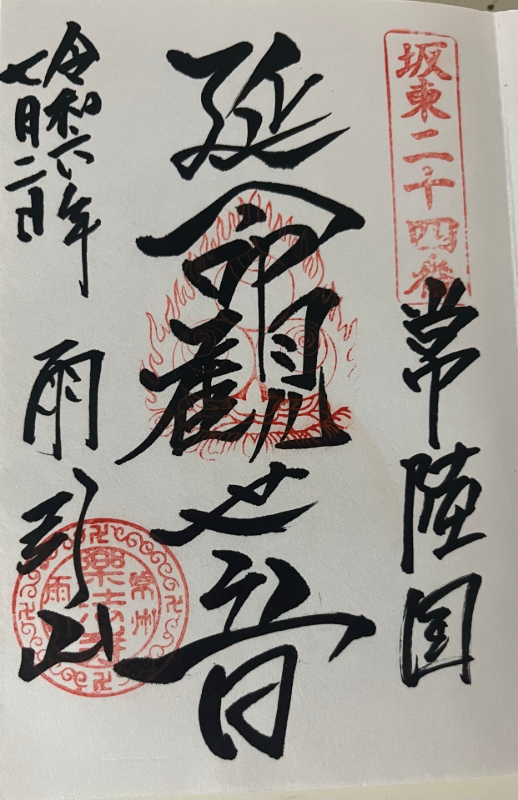 坂東二十四番
常陸国
延命観世音
雨引山
令和六年
七月二日
常州
楽法寺
雨引